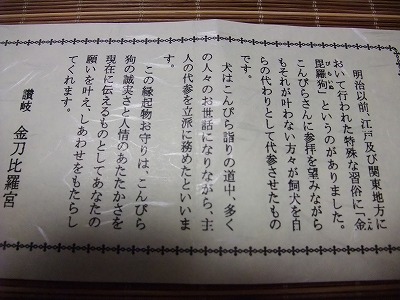 明治以前、江戸及び関東地方に
おいて行われた特殊な習俗に「金
毘羅狗」というのがありました。
こんぴらさんに参拝を望みながら
もそれが叶わない方々が飼犬を自
らの代わりとして代参させたもの
です。
犬はこんぴら詣りの道中、多く
の人々のお世話になりながら、主
人の代参を立派に務めたといいま
す。
この縁起物お守りは、こんぴら
狗の誠実さと人情のあたたかさを
現在に伝えるものとしてあなたの
願いを叶え、しあわせをもたらし
てくれます。
讃岐 金刀比羅宮